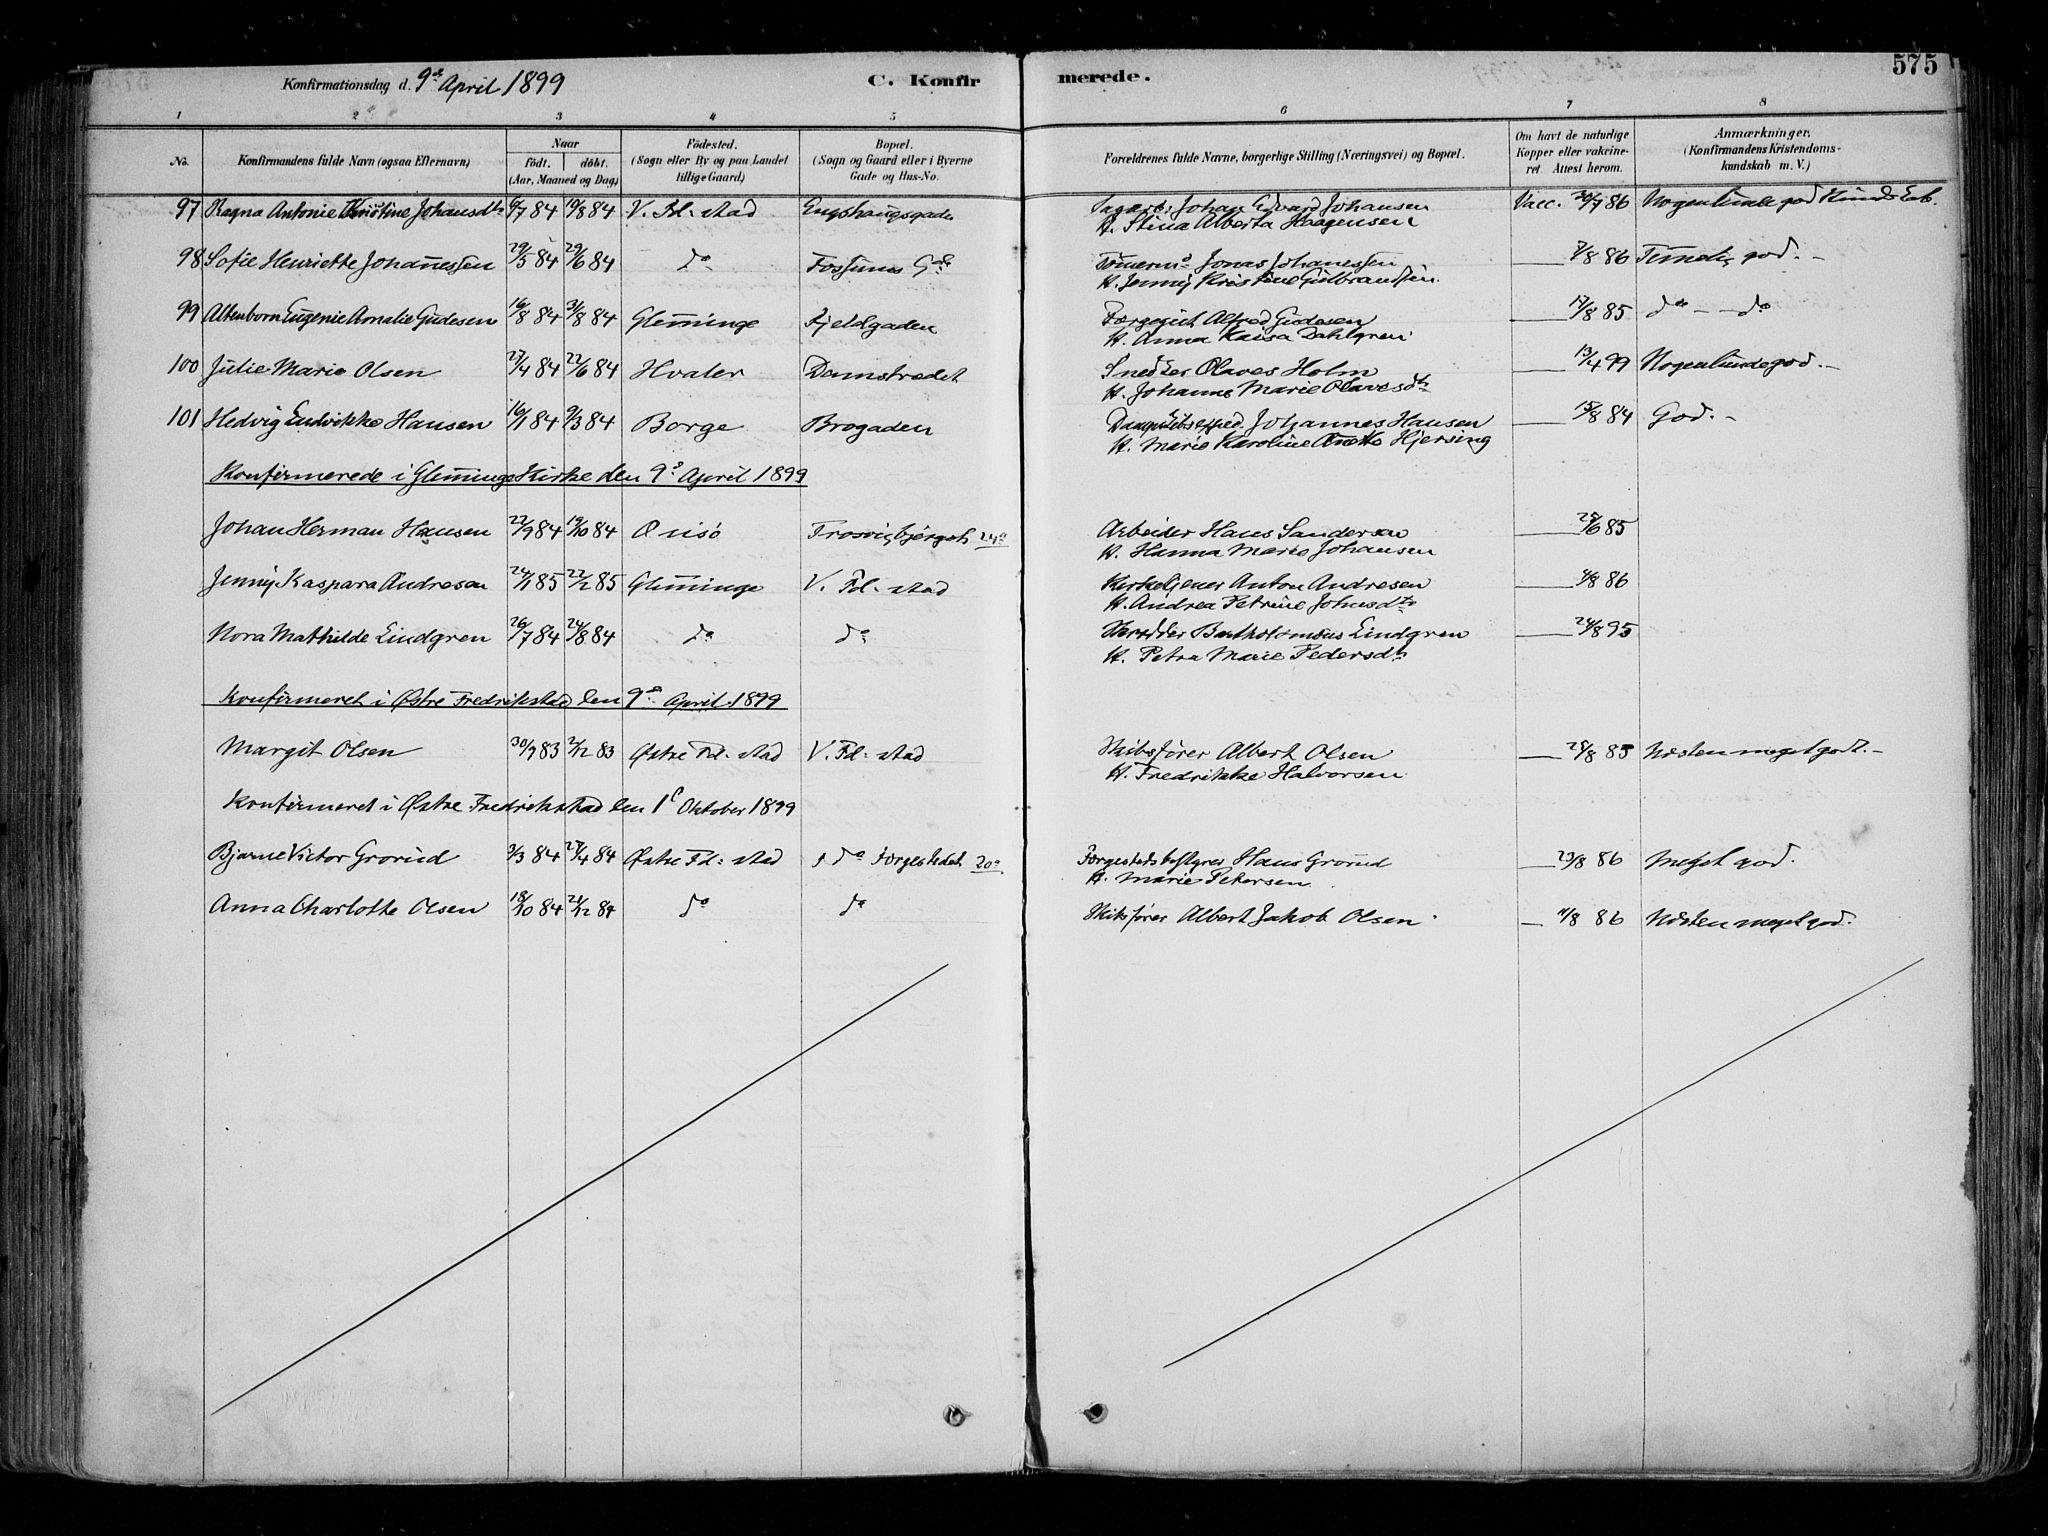 575
Konfirmationsdag d. 9de April 1899
C. Konfirmerede.
1 2 3 4 5 6 7 8
No. Konfirmandens fulde Navn (ogsaa Efternavn) Naar födt. döbt. (Aar, Maaned og Dag) Födested. (Sogn eller By og paa Landet tillige Gaard) Bopæl. (Sogn og Gaard eller i Byerne Gade og Hus-No. Forældrenes fulde Navne, borgerlige Stilling (Næringsvei) og Bopæl. Om havt de naturlige Kopper eller vakcineret. Attest herom. Anmærkninger. (Konfirmandens Kristendomskundskab m. V.)
97 Ragna Antonie Kristine Johansdtr 6/7 84 19/8 84 V. Fd: stad Engshaugsgaden Sagarb: Johan Edvard Johansen Vacc. 30/7 86 Nogenlunde god Kundskab.
H. Stina Alberta Haagensen
98 Sofie Henriette Johannessen 29/5 84 29/6 84 do Fossums Gd Tømerm: Jonas Johanessen 7/8 86 Temelig god. -
H. Jenny Kristine Gulbrandsen
99 Altenborn Eugenie Amalie Gudesen 16/8 84 31/8 84 Glemminge Fjeldgaden Færgegut Alfred Gudesen 17/8 85 do - do
H. Anna Kaisa Dahlgren
100 Julie Marie Olsen 27/4 84 22/6 84 Hvaler Damstredet Snedker Olaves Holm 13/4 99 Nogenlunde god. -
H. Johanne Marie Olavesdtr
101 Hedvig Ludvikke Hansen 16/1 84 9/3 84 Borge Brogaden Dampskibsexped. Johannes Hansen 15/8 84 God. -
H. Marie Karoline Anette Hjersing
Konfirmerede i Glemminge Kirke den 9de April 1899
Johan Herman Hansen 22/9 84 19/10 84 Onsö Trosvigbjerget 24a Arbeider Hans Sandersen 25/6 85
H. Hanna Marie Johansen
Jenny Kaspara Andresen 24/1 85 22/2 85 Glemminge V. Fd: stad Kirketjener Anton Andresen 4/8 86
H. Andrea Petrine Johnsdtr
Nora Mathilde Lindgren 26/7 84 24/8 84 do do Skrædder Bartholomæus Lindgren 24/8 95
H. Petra Marie Pedersdtr
Konfirmeret i Østre Fredrikstad den 9de April 1899
Margit Olsen 30/9 83 2/12 83 Østre Fd: stad V. Fd: stad Skibsfører Albert Olsen 25/8 85 Næsten meget godt. -
H. Fredrikke Halvorsen
Konfirmeret i Østre Fredrikstad den 1ste Oktober 1899
Bjarne Victor Grorud 3/3 84 27/4 84 Østre Fd: stad do Færgestedet 20a Færgestedsbestyrer Hans Grorud 23/8 86 Meget god.
H. Marie Petersen
Anna Charlotte Olsen 18/10 84 21/12 84 do do Skibsfører Albert Jakob Olsen 11/8 86 Næsten meget god.